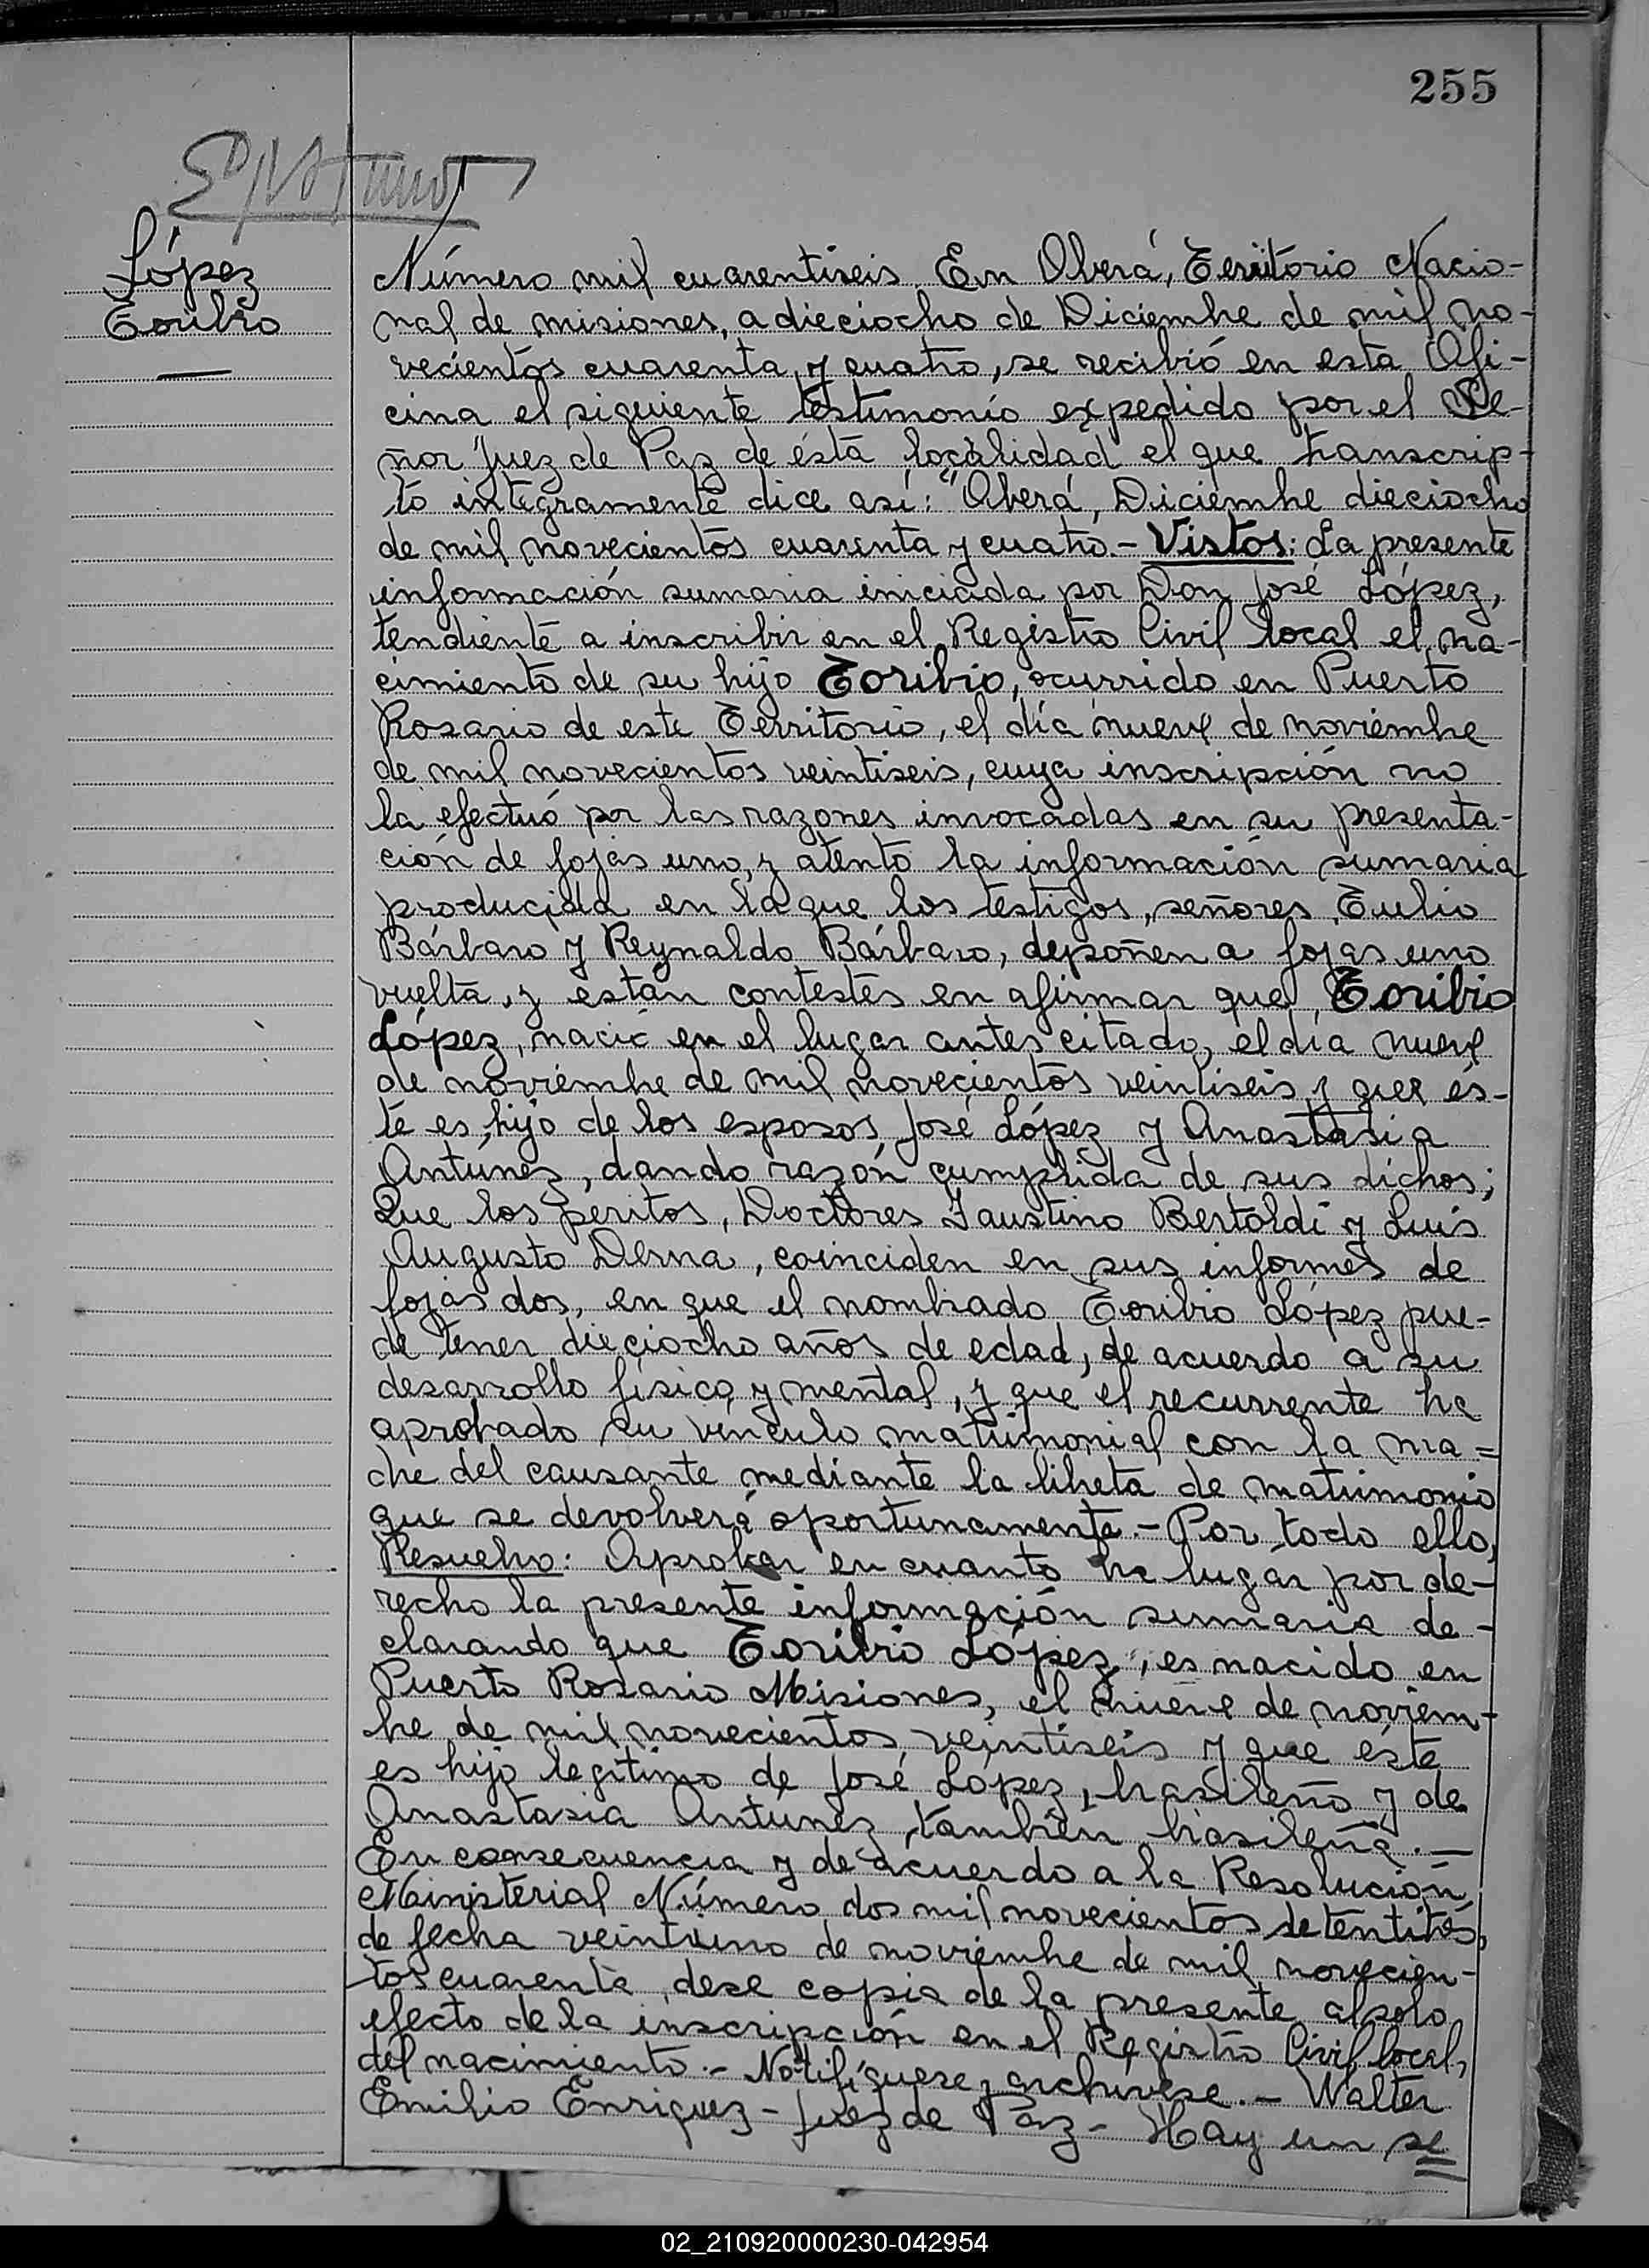 255
López
Toribio
Número mil cuarentiseis. En Oberá, Territorio Nacio-
nal de misiones, a dieciocho de Diciembre de mil no-
vecientos cuarenta y cuatro, se recibió en esta Ofi-
cina el siguiente testimonio expedido por el Se-
ñor Juez de Paz de ésta localidad el que transcrip-
to integramente dice así: "Oberá, Diciembre dieciocho
de mil novecientos cuarenta y cuatro.- Vistos: La presente
información sumaria iniciada por Don José López,
tendiente a inscribir en el Registro Civil local el na-
cimiento de su hijo Toribio, ocurrido en Puerto
Rosario de este Territorio, el día nueve de noviembre
de mil novecientos veintiseis, cuya inscripción no
la efectuó por las razones invocadas en su presenta-
ción de fojas uno, y atento la información sumaria
producida en la que los testigos, señores, Tulio
Bárbaro y Reynaldo Bárbaro, deponen a fojas uno
vuelta, y están contestes en afirmar que, Toribio
López, nació en el lugar antes citado, el día nueve
de noviembre de mil novecientos veintiseis y que és-
te es hijo de los esposos José López y Anastasia
Antúnez, dando razón cumplida de sus dichos;
Que los peritos, Doctores Faustino Bertoldi y Luis
Augusto Derna, coinciden en sus informes de
fojas dos, en que el nombrado Toribio López pue-
de tener dieciocho años de edad, de acuerdo a su
desarrollo físico y mental, y que el recurrente ha
aprobado su vínculo matrimonial con la ma=
dre del causante mediante la libreta de matrimonio
que se devolverá oportunamente.- Por todo ello,
Resuelvo: Aprobar en cuanto ha lugar por de-
recho la presente información sumaria de-
clarando que Toribio López, es nacido en
Puerto Rosario Misiones, el nueve de noviem-
bre de mil novecientos veintiseis y que éste
es hijo legítimo de José López, brasileño y de
Anastasia Antúnez, también brasileña.-
En consecuencia y de acuerdo a la Resolución
Ministerial Número dos mil novecientos setentitrés,
de fecha veintiuno de noviembre de mil novecien-
tos cuarenta, dese copia de la presente al solo
efecto de la inscripción en el Registro Civil local,
del nacimiento.- Notifíquese y archívese.- Walter
Emilio Enriquez - Juez de Paz - Hay un se
02_210920000230-042954